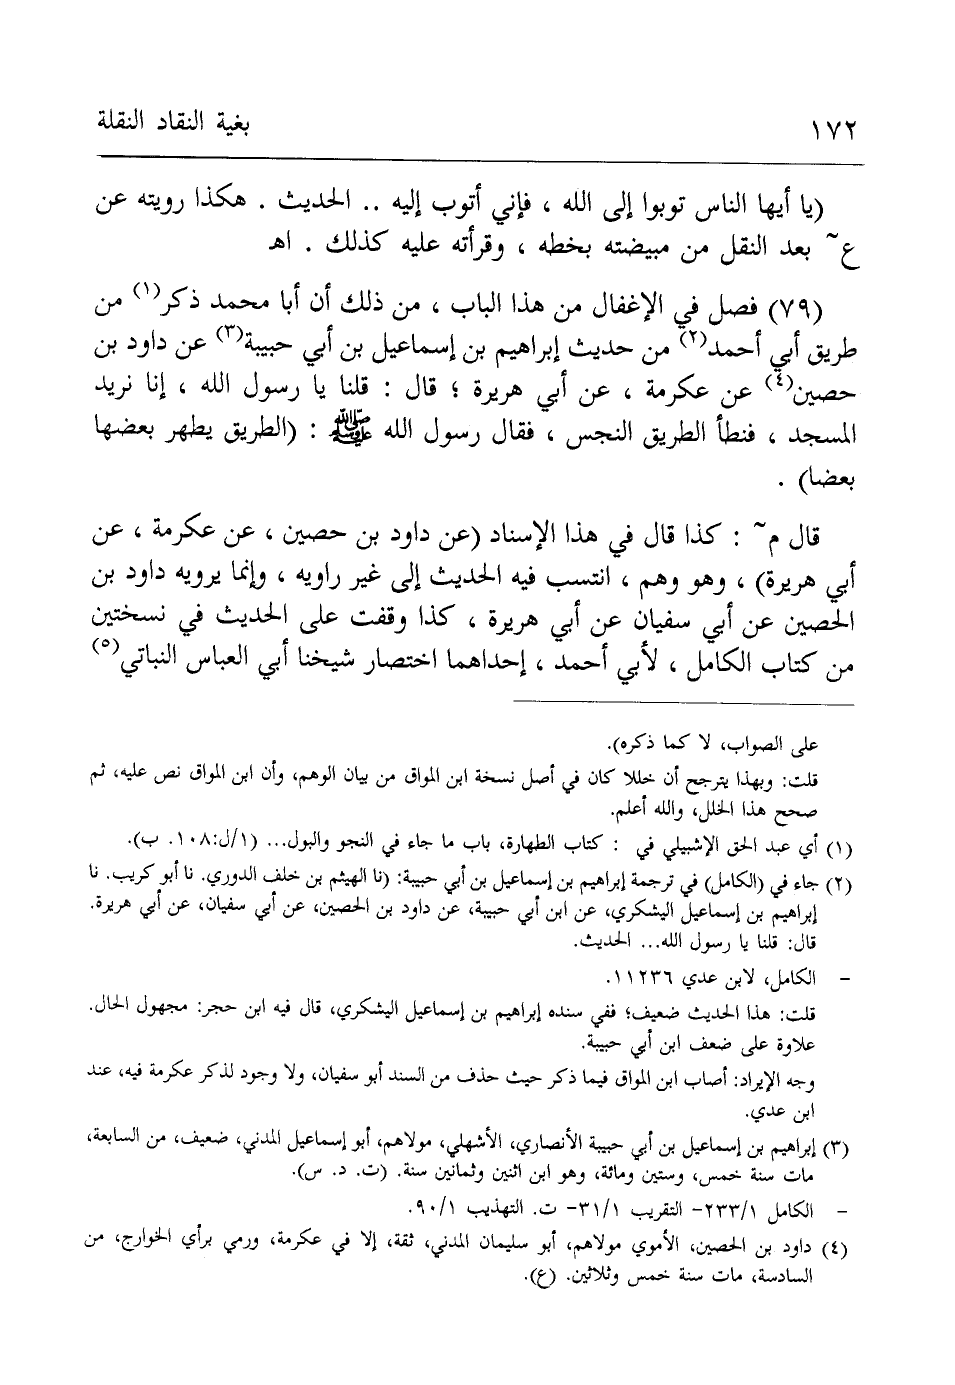 ١٧٢ بغية النقاد النقلة
(يا أيها الناس توبوا إلى الله ، فإني أتوب إليه .. الحديث . هكذا رويته عن
ع~ بعد النقل من مبيضته بخطه ، وقرأته عليه كذلك . اهـ
(٧٩) فصل في الإغفال من هذا الباب ، من ذلك أن أبا محمد ذكر(١) من
طريق أبي أحمد(٢) من حديث إبراهيم بن إسماعيل بن أبي حبيبة(٣) عن داود بن
حصين(٤) عن عكرمة ، عن أبي هريرة ؛ قال : قلنا يا رسول الله ، إنا نريد
المسجد ، فنطأ الطريق النجس ، فقال رسول الله ﷺ : (الطريق يطهر بعضها
بعضا) .
قال م~ : كذا قال في هذا الإسناد (عن داود بن حصين ، عن عكرمة ، عن
أبي هريرة) ، وهو وهم ، انتسب فيه الحديث إلى غير راويه ، وإنما يرويه داود بن
الحصين عن أبي سفيان عن أبي هريرة ، كذا وقفت على الحديث في نسختين
من كتاب الكامل ، لأبي أحمد ، إحداهما اختصار شيخنا أبي العباس النباتي(٥)
على الصواب، لا كما ذكره).
قلت: وبهذا يترجح أن خللا كان في أصل نسخة ابن المواق من بيان الوهم، وأن ابن المواق نص عليه، ثم
صحح هذا الخلل، والله أعلم.
(١) أي عبد الحق الإشبيلي في : كتاب الطهارة، باب ما جاء في النجو والبول... (١/ل:١٠٨. ب).
(٢) جاء في (الكامل) في ترجمة إبراهيم بن إسماعيل بن أبي حبيبة: (نا الهيثم بن خلف الدوري. نا أبو كريب. نا
إبراهيم بن إسماعيل اليشكري، عن ابن أبي حبيبة، عن داود بن الحصين، عن أبي سفيان، عن أبي هريرة.
قال: قلنا يا رسول الله... الحديث.
- الكامل، لابن عدي ١١٢٣٦.
قلت: هذا الحديث ضعيف؛ ففي سنده إبراهيم بن إسماعيل اليشكري، قال فيه ابن حجر: مجهول الحال.
علاوة على ضعف ابن أبي حبيبة.
وجه الإيراد: أصاب ابن المواق فيما ذكر حيث حذف من السند أبو سفيان، ولا وجود لذكر عكرمة فيه، عند
ابن عدي.
(٣) إبراهيم بن إسماعيل بن أبي حبيبة الأنصاري، الأشهلي، مولاهم، أبو إسماعيل المدني، ضعيف، من السابعة،
مات سنة خمس، وستين ومائة، وهو ابن اثنين وثمانين سنة. (ت. د. س).
- الكامل ٢٣٣/١- التقريب ٣١/١- ت. التهذيب ٩٠/١.
(٤) داود بن الحصين، الأموي مولاهم، أبو سليمان المدني، ثقة، إلا في عكرمة، ورمي برأي الخوارج، من
السادسة، مات سنة خمس وثلاثين. (ع).